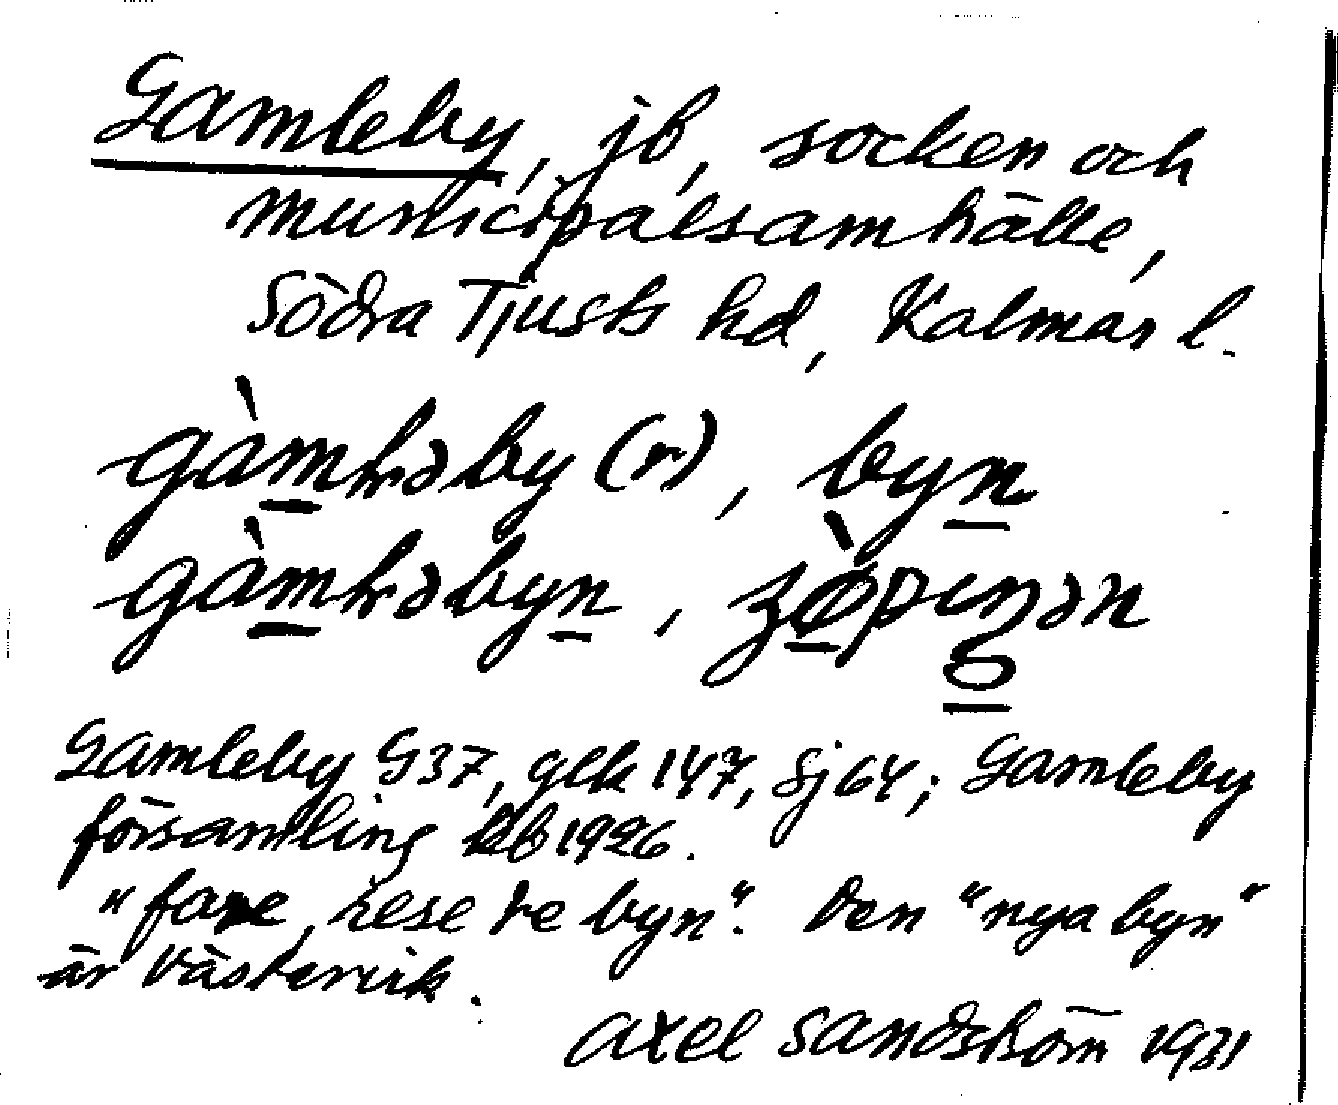 Gamleby, jb, socken och
municipalsamhälle,
Södra Tjusts hd, Kalmar l.
gàmləby (n), byn
gàmləbyn,
Gamleby G37, glk 147, Sj 64; Gamleby
församling kb 1926.
"fare, rese te byn". Den "nya byn"
är Västervik.
Axel Sandström 1931